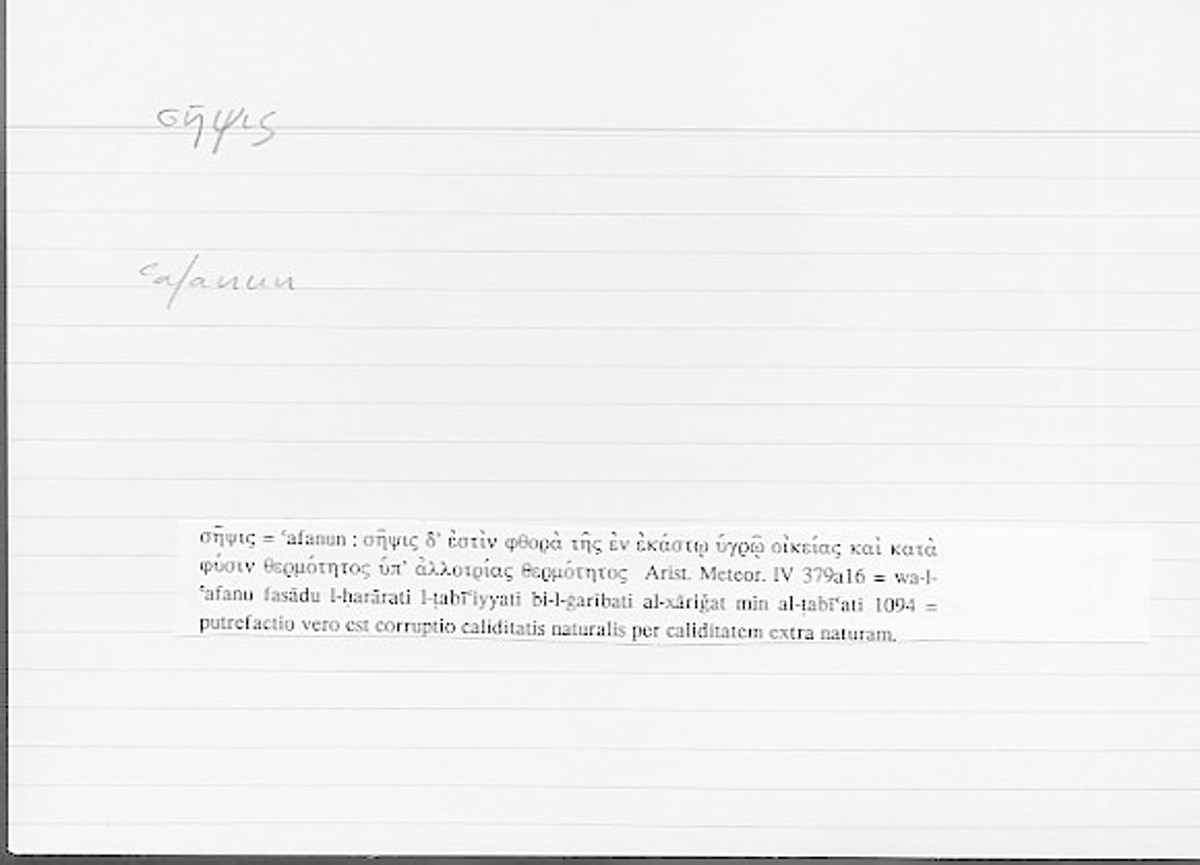 σῆψις
ʿafanun
σῆψις = ʿafanun : σῆψις δ’ ἐστὶν φθορὰ τῆς ἐν ἑκάστῳ ὑγρῷ οἰκείας καὶ κατὰ
φύσιν θερμότητος ὑπ’ ἀλλοτρίας θερμότητος Arist. Meteor. IV 379a16 = wa-l-
ʿafanu fasādu l-ḥarārati l-ṭabīʿiyyati bi-l-ġarībati al-xāriǧat min al-ṭabīʿati 1094 =
putrefactio vero est corruptio caliditatis naturalis per caliditatem extra naturam.